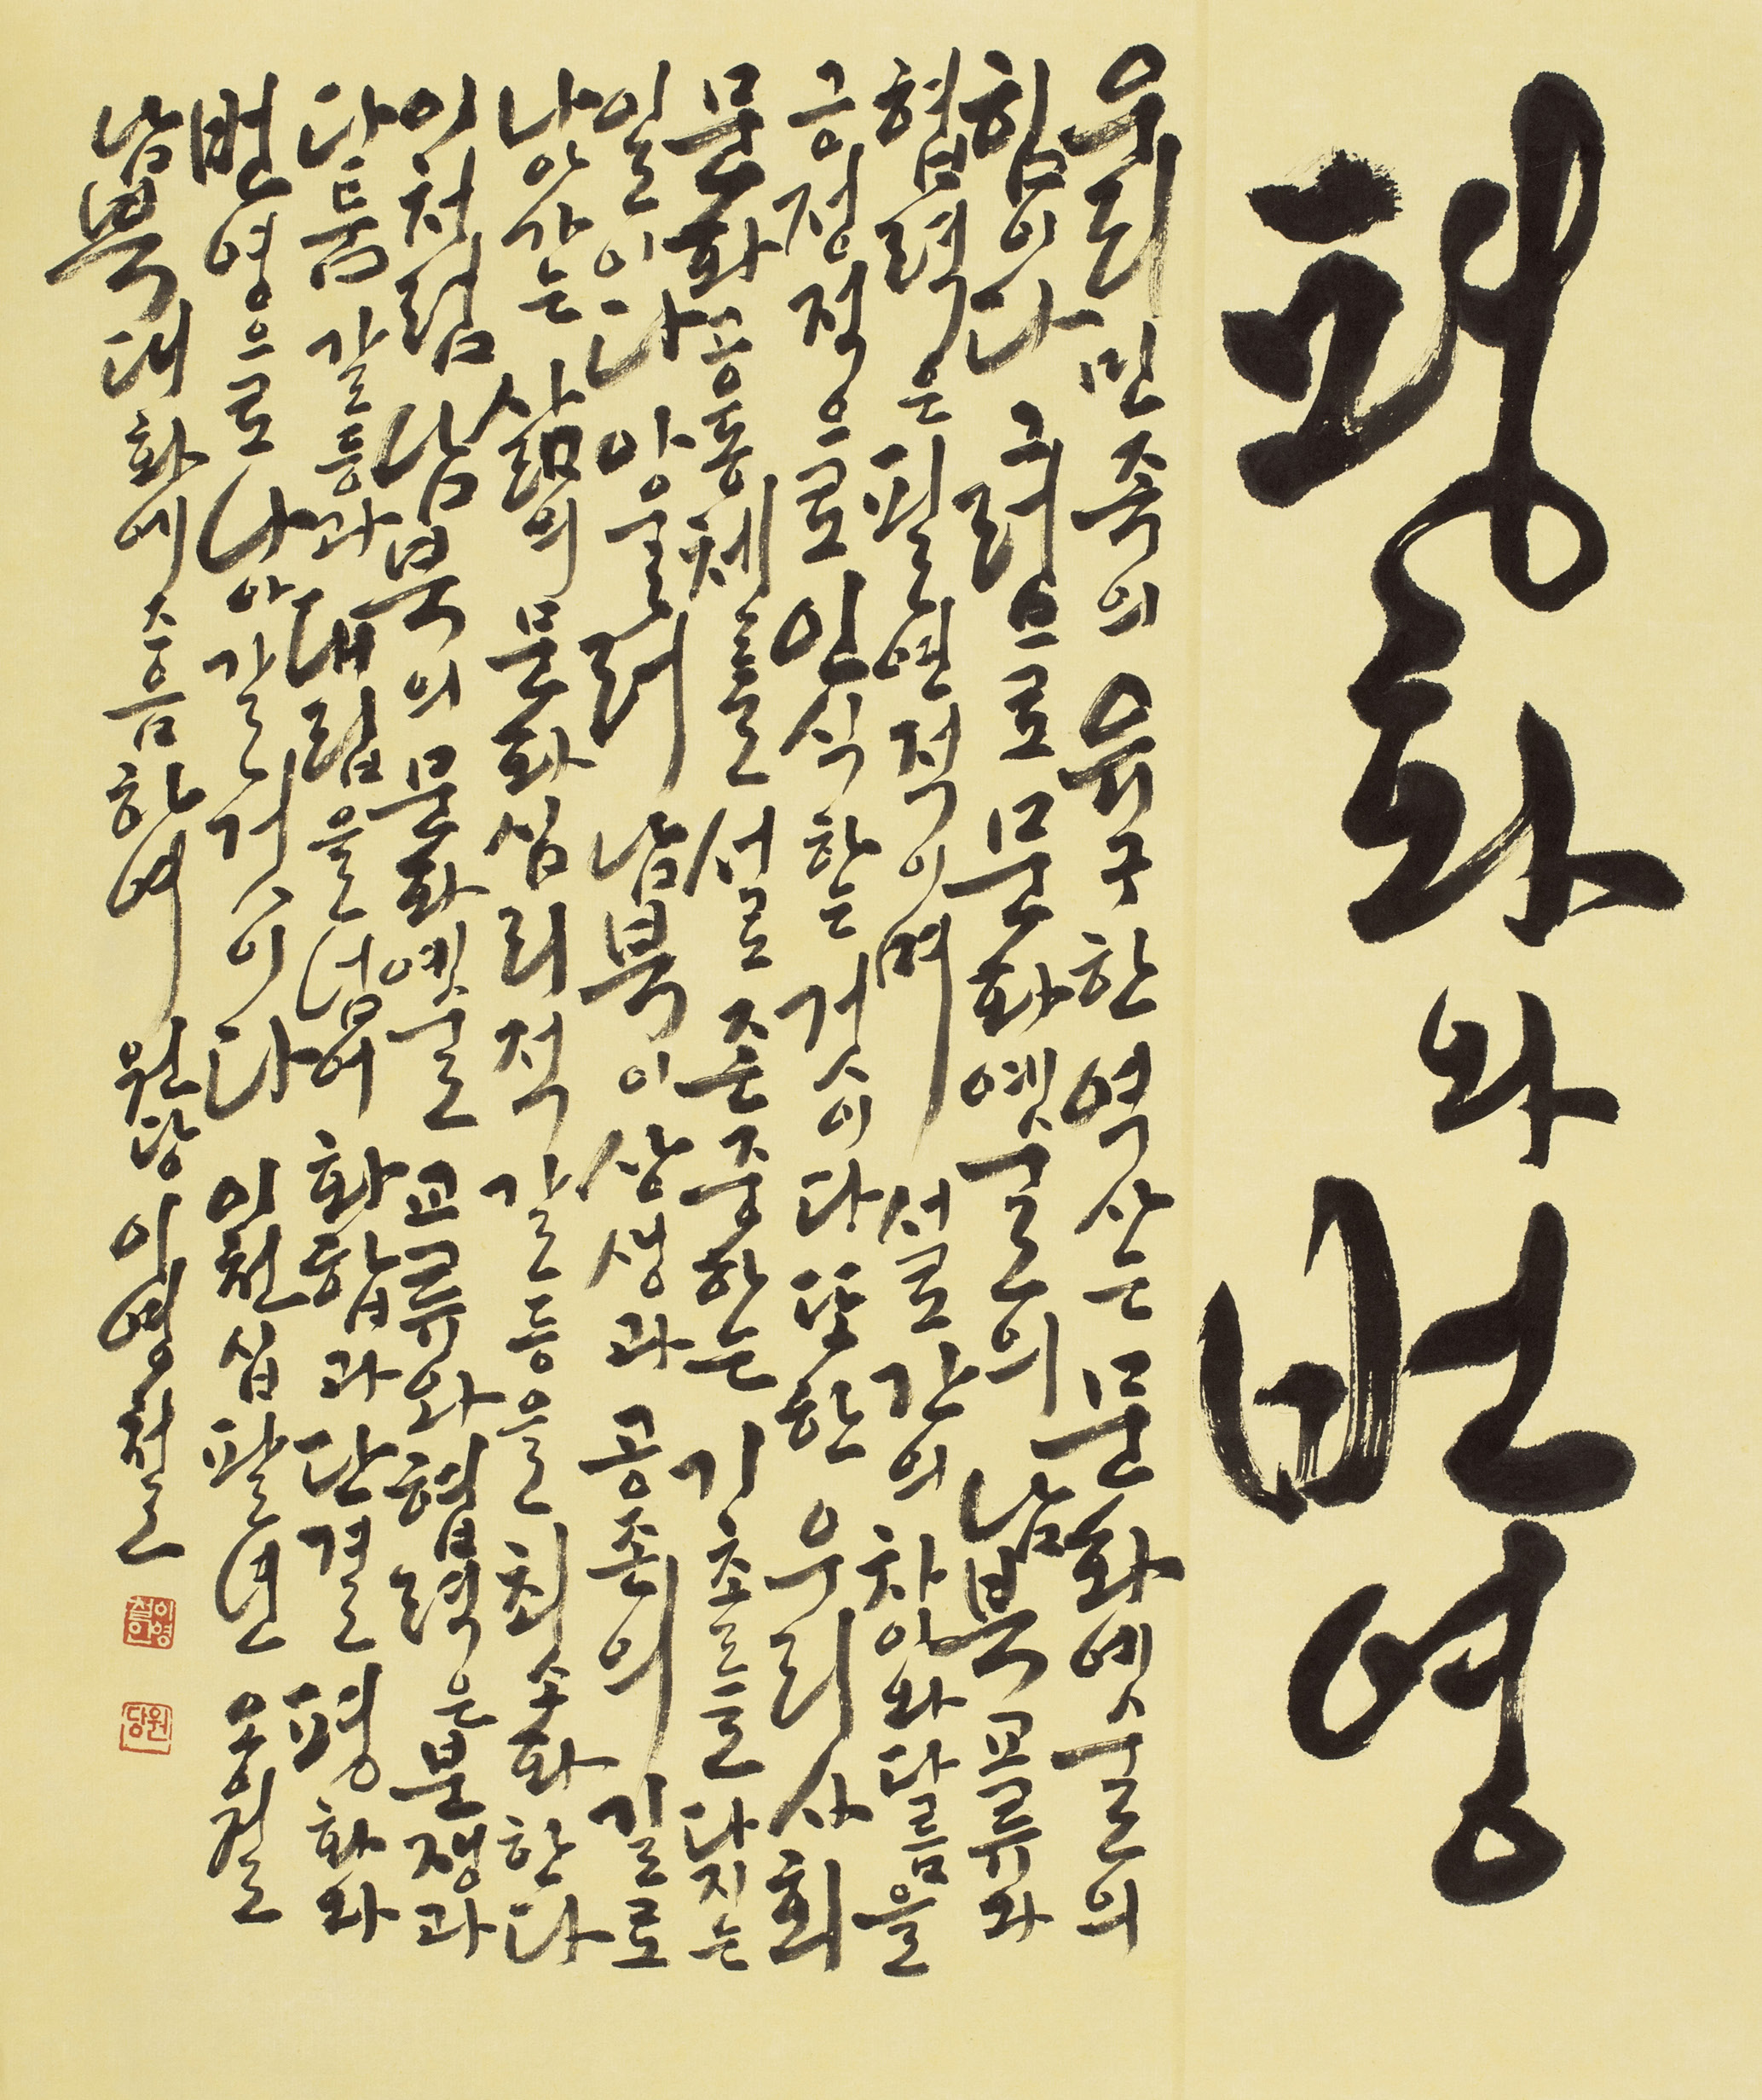 평화와 번영
우리 민족의 유구한 역사는 문화예술의
힘이다 그러므로 문화예술의 남북교류와
협력은 필연적이며 서로간의 차이와 다름을
긍정적으로 인식하는 것이다 또한 우리사회
문화공동체를 서로 존중하는 기초를 다지는
일이다 아울러 남북이 상생과 공존의 길로
나아가는 삶의 문화심리적 갈등을 최소화한다
이처럼 남북의 문화예술 교류와 협력은 분쟁과
다툼 갈등과 대립을 넘어 화합과 단결 평화와
번영으로 나아갈 것이다 이천십팔년
남북대화에 즈음하여 원당 이영철
이영철인
원당